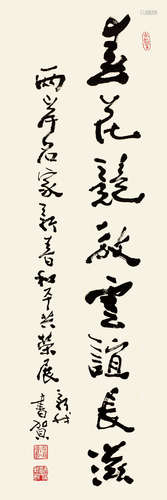 春花競放雲誼長滋
兩岸名家新春和平共榮展
新哉書賀